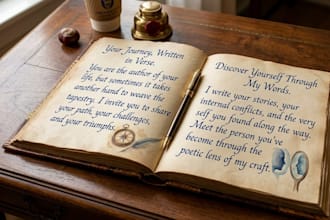 Your Journey, Written
in Verse.
You are the author of your
life, but sometimes it takes
another hand to weave the
tapestry. I invite you to share
your path, your challenges,
and your triumphs.
Discover Yourself Through
My Words.
I write your stories, your
internal conflicts, and the very
self you found along the way.
Meet the person you've
become through the
poetic lens of my craft.